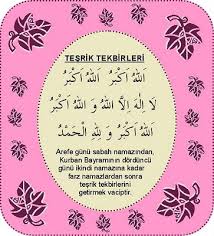 TEŞRİK TEKBİRLERİ
اَللهُ اَكْبَرُ اَللهُ اَكْبَرُ
لَا اِلٰهَ اِلَّا اللهُ وَ اللهُ اَكْبَرُ
اَللهُ اَكْبَرُ وَ لِلّٰهِ الْحَمْدُ
Arefe günü sabah namazından,
Kurban Bayramının dördüncü
günü ikindi namazına kadar
farz namazlardan sonra
teşrik tekbirlerini
getirmek vaciptir.